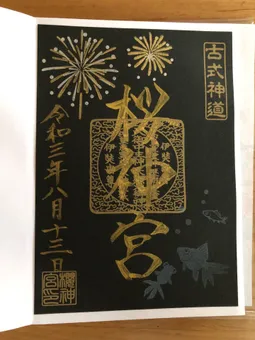 古式神道
桜神宮
令和三年八月十三日
櫻神
宮印